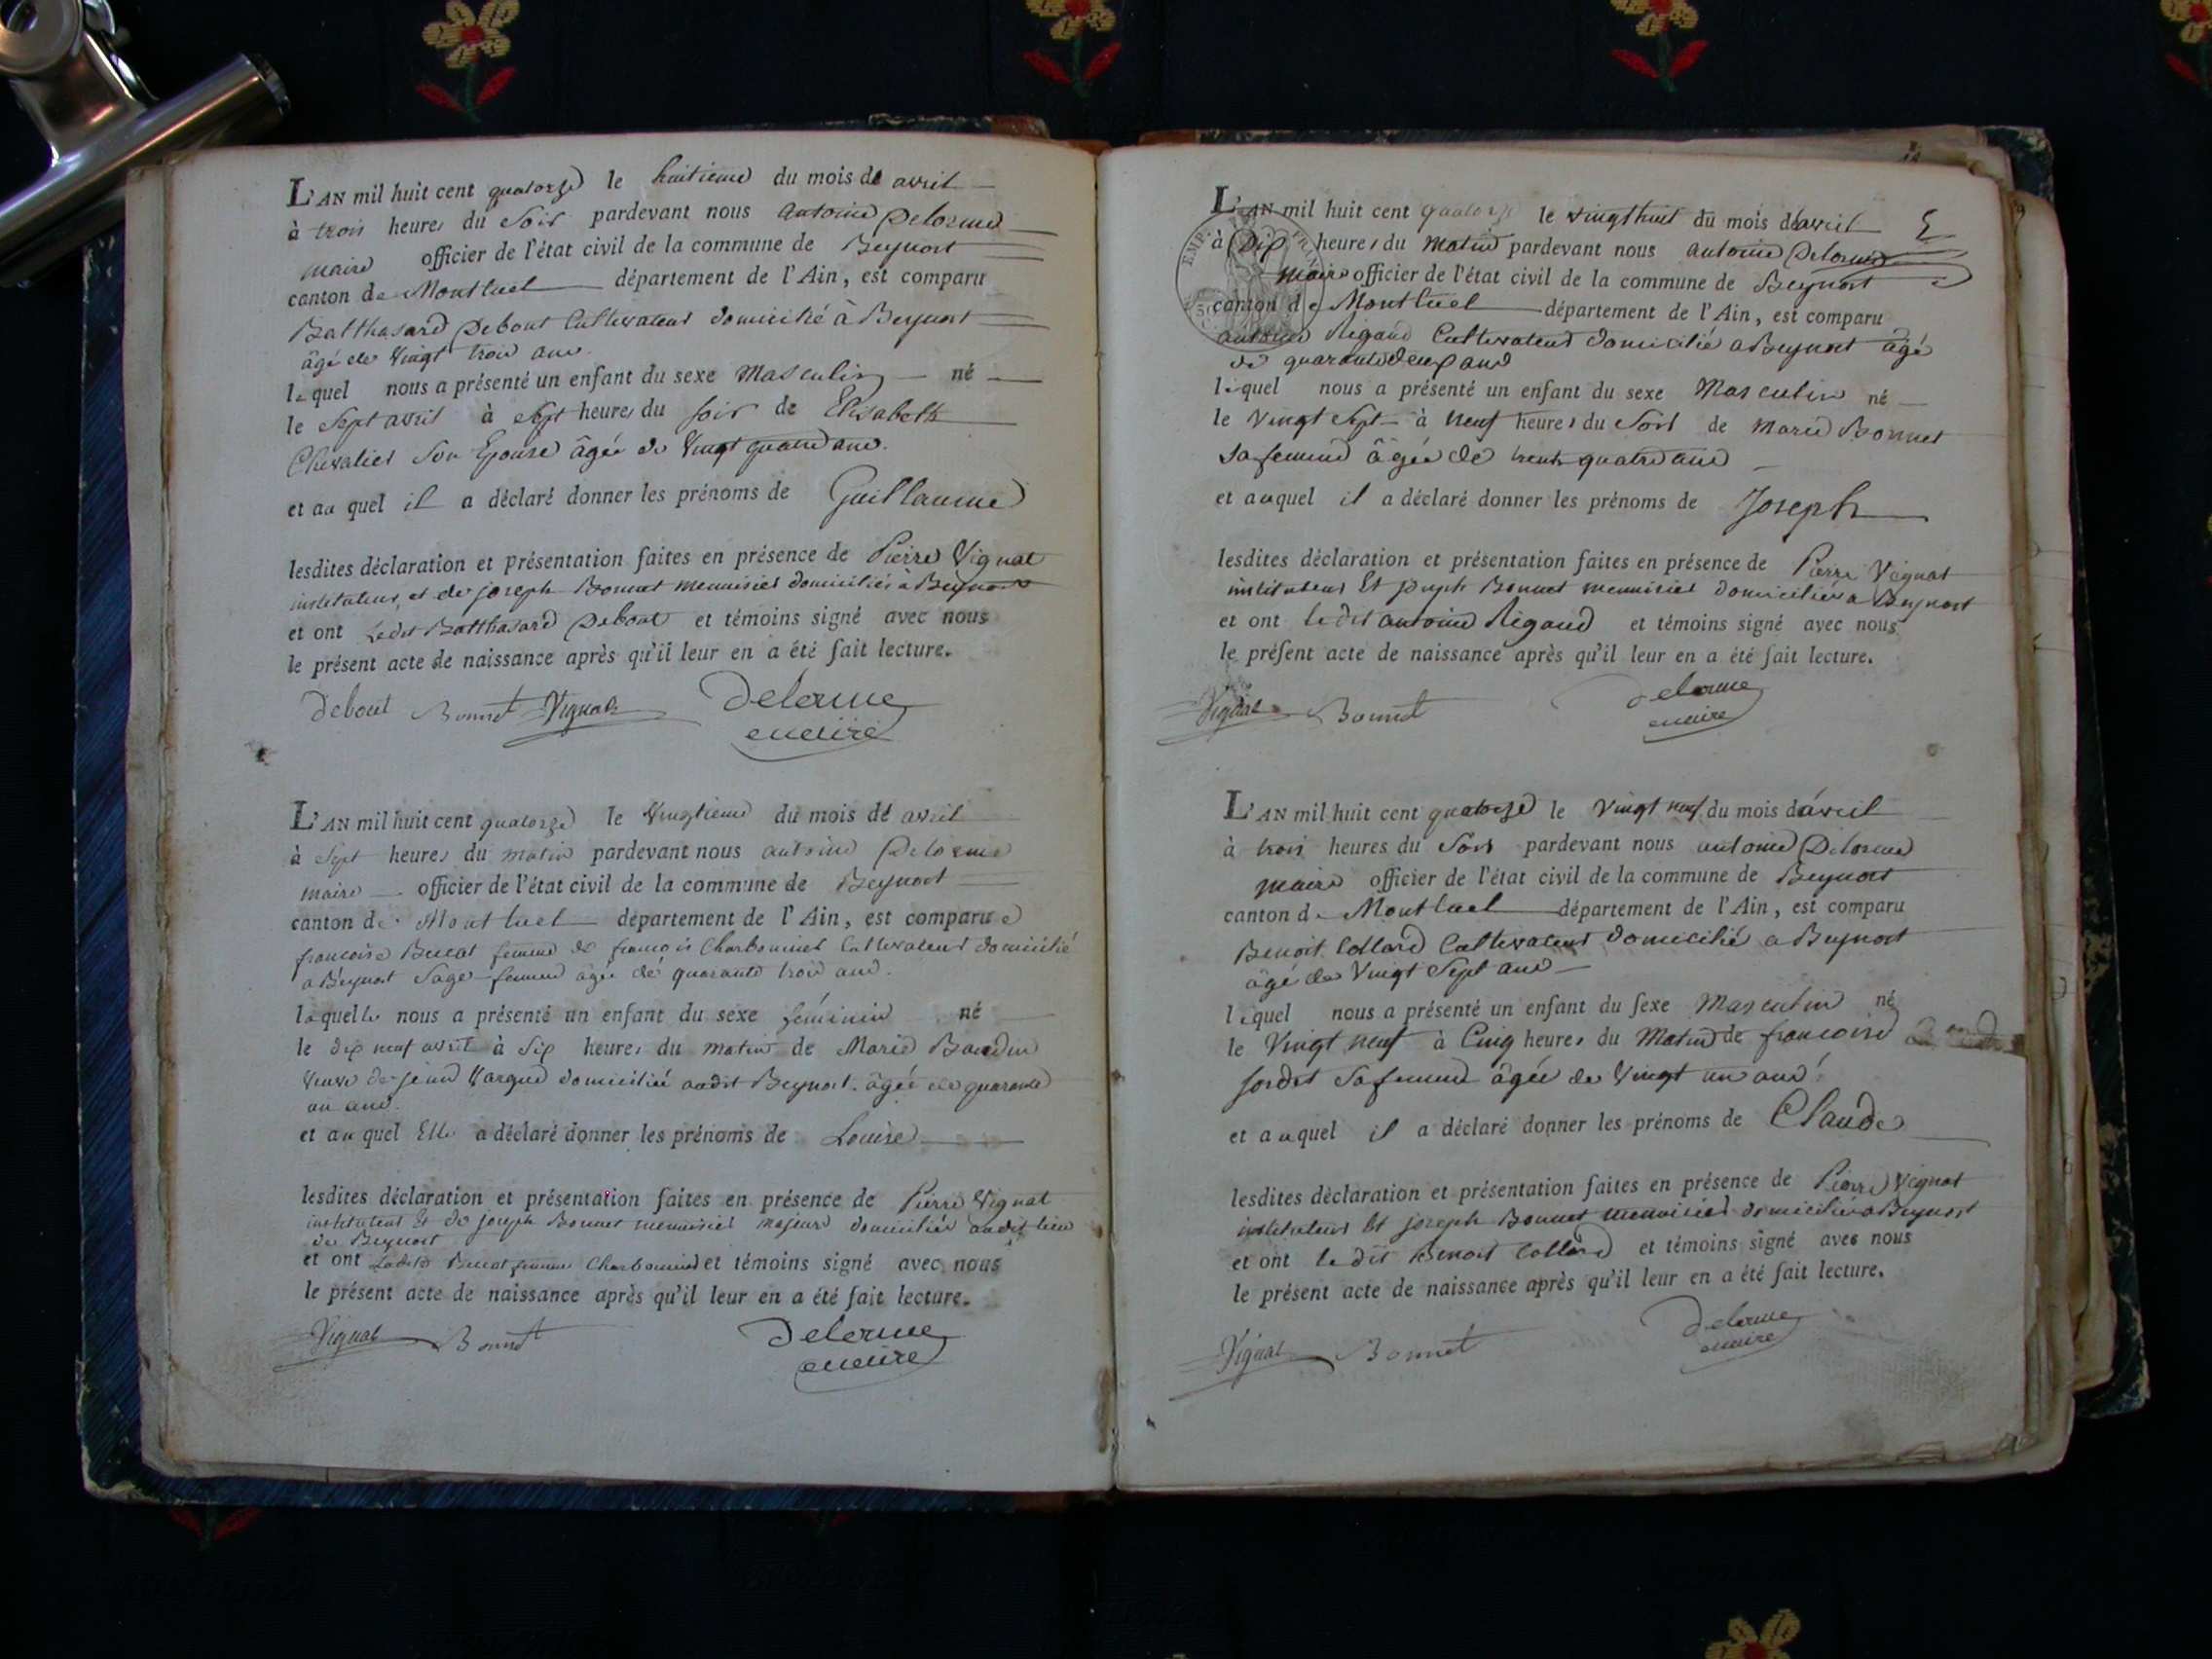 L'AN mil huit cent quatorze le huitieme du mois de avril
à trois heures du Soir pardevant nous antoine Delorme
maire officier de l'état civil de la commune de Beynost
canton de Montluel département de l'Ain, est comparu
Balthasard Debout Cultivateur domicilié à Beynost
âgé de Vingt trois ans.
lequel nous a présenté un enfant du sexe Masculin né
le Sept avril à Sept heures du soir de Elisabeth
Chevalier Son Epouse âgée de Vingt quatre ans.
et au quel il a déclaré donner les prénoms de Guillaume
lesdites déclaration et présentation faites en présence de Pierre Vignat
instituteur, et de joseph Bonnet menuisier domiciliés à Beynost
et ont Ledit Balthasard Debout et témoins signé avec nous
le présent acte de naissance après qu'il leur en a été fait lecture.
Debout Bonnet Vignat Delorme
maire
L'AN mil huit cent quatorze le Vingtieme du mois de avril
à Sept heures du matin pardevant nous antoine Delorme
maire officier de l'état civil de la commune de Beynost
canton de Montluel département de l'Ain, est comparue
francoise Bucat femme de françois Charbonnet Cultivateur domicilié
a Beynost Sage femme âgée de quarante trois ans.
laquelle nous a présenté un enfant du sexe féminin né
le dix neuf avril à Six heures du matin de Marie Baudin
Veuve de jean domiciliée audit Beynost. âgée de quarante
un ans.
et au quel Elle a déclaré donner les prénoms de Louise
lesdites déclaration et présentation faites en présence de Pierre Vignat
instituteur Et de joseph Bonnet menuisier majeurs domiciliés audit lieu
de Beynost
et ont Ladite Bucat femme Charbonnet et témoins signé avec nous
le présent acte de naissance après qu'il leur en a été fait lecture.
Vignat Bonnet Delorme
maire
L'AN mil huit cent quatorze le vingthuit du mois de avril
à Dix heures du Matin pardevant nous antoine Delorme
maire officier de l'état civil de la commune de Beynost
canton de Montluel département de l'Ain, est comparu
antoine Rigaud Cultivateur domicilié a Beynost âgé
de quarante deux ans
lequel nous a présenté un enfant du sexe Masculin né
le Vingt Sept à Neuf heures du Soir de Marie Bonnet
Sa femme âgée de trente quatre ans
et auquel il a déclaré donner les prénoms de Joseph
lesdites déclaration et présentation faites en présence de Pierre Vignat
instituteur Et joseph Bonnet menuisier domiciliés a Beynost
et ont le dit antoine Rigaud et témoins signé avec nous
le présent acte de naissance après qu'il leur en a été fait lecture.
Vignat Bonnet Delorme
maire
L'AN mil huit cent quatorze le Vingt neuf du mois d'avril
à trois heures du Soir pardevant nous antoine Delorme
maire officier de l'état civil de la commune de Beynost
canton de Montluel département de l'Ain, est comparu
Benoit Collard Cultivateur domicilié a Beynost
âgé de Vingt Sept ans
lequel nous a présenté un enfant du sexe Masculin né
le Vingt neuf à Cinq heures du Matin de francoise
Sa femme âgée de Vingt un ans
et auquel il a déclaré donner les prénoms de Claude
lesdites déclaration et présentation faites en présence de Pierre Vignat
instituteur Et joseph Bonnet menuisier domiciliés a Beynost
et ont le dit Benoit Collard et témoins signé avec nous
le présent acte de naissance après qu'il leur en a été fait lecture.
Vignat Bonnet Delorme
maire